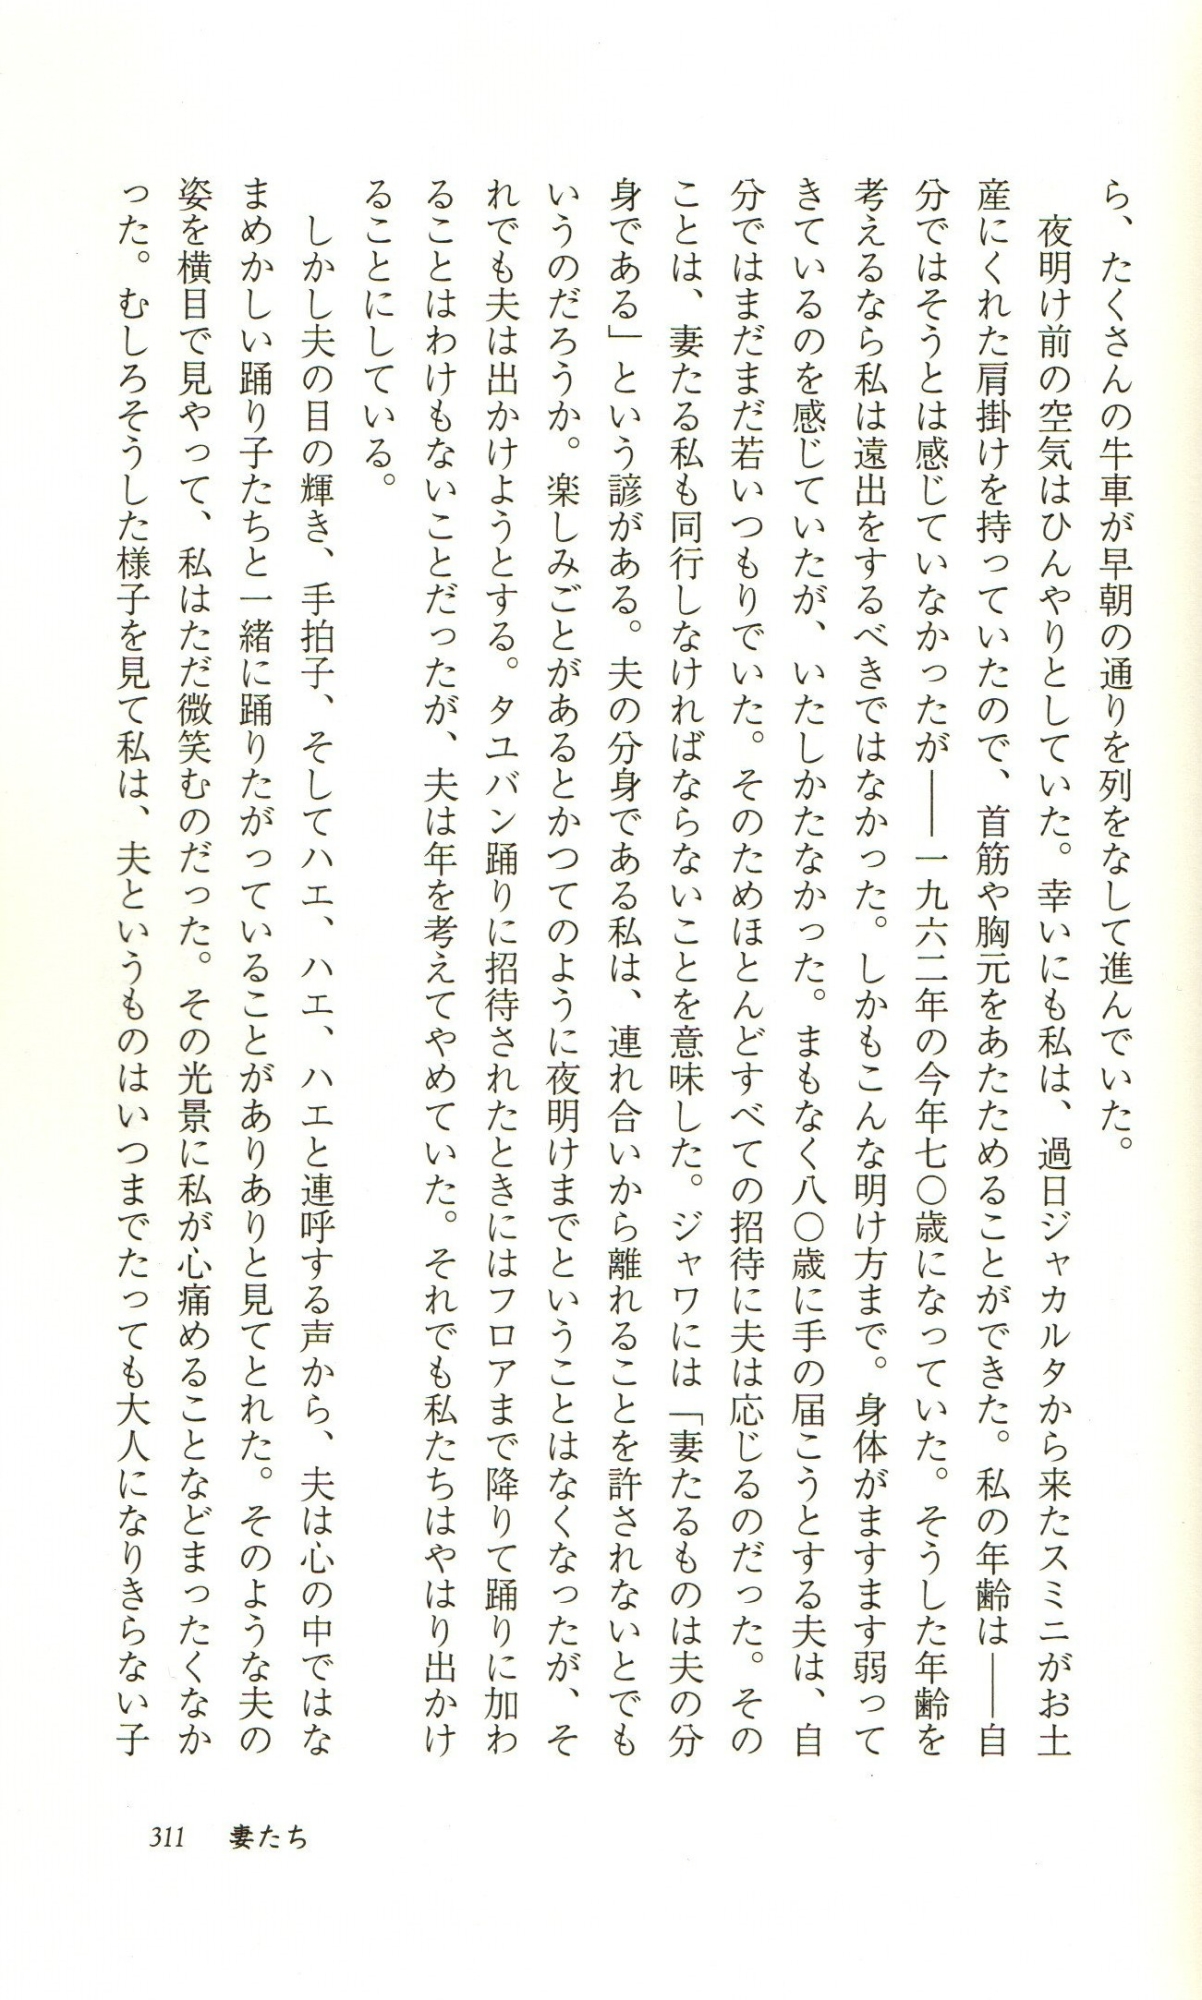 ら、たくさんの牛車が早朝の通りを列をなして進んでいた。
夜明け前の空気はひんやりとしていた。幸いにも私は、過日ジャカルタから来たスミニがお土
産にくれた肩掛けを持っていたので、首筋や胸元をあたためることができた。私の年齢は――自
分ではそうとは感じていなかったが――一九六二年の今年七〇歳になっていた。そうした年齢を
考えるなら私は遠出をするべきではなかった。しかもこんな明け方まで。身体がますます弱って
きているのを感じていたが、いたしかたなかった。まもなく八〇歳に手の届こうとする夫は、自
分ではまだまだ若いつもりでいた。そのためほとんどすべての招待に夫は応じるのだった。その
ことは、妻たる私も同行しなければならないことを意味した。ジャワには「妻たるものは夫の分
身である」という諺がある。夫の分身である私は、連れ合いから離れることを許されないとでも
いうのだろうか。楽しみごとがあるとかつてのように夜明けまでということはなくなったが、そ
れでも夫は出かけようとする。タユバン踊りに招待されたときにはフロアまで降りて踊りに加わ
ることはわけもないことだったが、夫は年を考えてやめていた。それでも私たちはやはり出かけ
ることにしている。
しかし夫の目の輝き、手拍子、そしてハエ、ハエ、ハエと連呼する声から、夫は心の中ではな
まめかしい踊り子たちと一緒に踊りたがっていることがありありと見てとれた。そのような夫の
姿を横目で見やって、私はただ微笑むのだった。その光景に私が心痛めることなどまったくなか
った。むしろそうした様子を見て私は、夫というものはいつまでたっても大人になりきらない子
311 妻たち